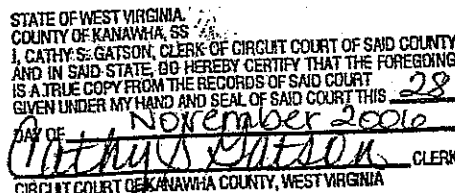 STATE OF WEST VIRGINIA,
COUNTY OF KANAWHA, SS
I, CATHY S. GATSON, CLERK OF CIRCUIT COURT OF SAID COUNTY
AND IN SAID STATE, DO HEREBY CERTIFY THAT THE FOREGOING
IS A TRUE COPY FROM THE RECORDS OF SAID COURT
GIVEN UNDER MY HAND AND SEAL OF SAID COURT THIS 28
DAY OF November 2006
Cathy S Gatson CLERK
CIRCUIT COURT OF KANAWHA COUNTY, WEST VIRGINIA